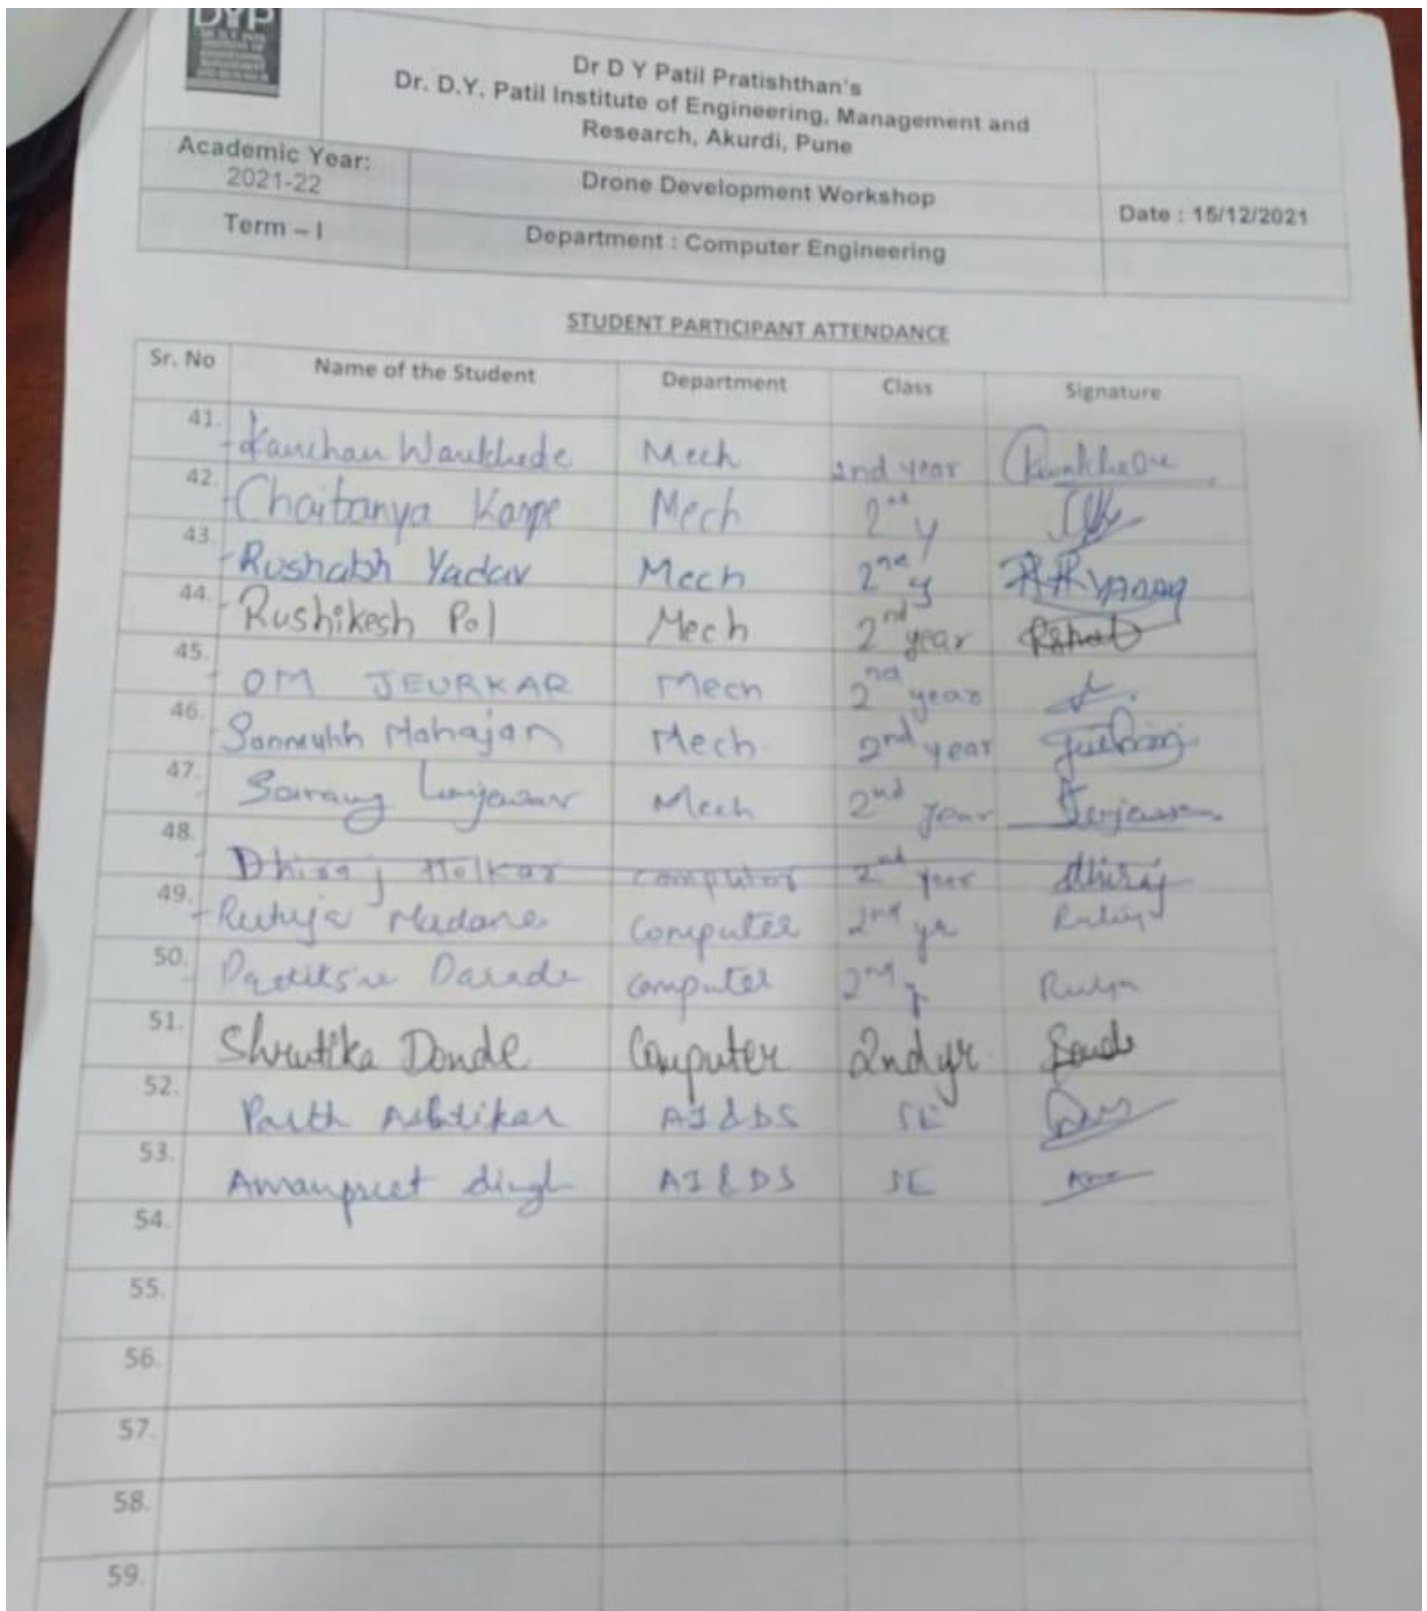 DYP
DR. D.Y. PATIL
INSTITUTE OF
ENGINEERING
MANAGEMENT
Dr D Y Patil Pratishthan's
Dr. D.Y. Patil Institute of Engineering, Management and
Research, Akurdi, Pune
Academic Year:
2021-22
Drone Development Workshop
Date : 15/12/2021
Term – I
Department : Computer Engineering
STUDENT PARTICIPANT ATTENDANCE
Sr. No Name of the Student Department Class Signature
41. Kanchan Wankhede Mech 2nd year
42. Chaitanya Karpe Mech 2nd y
43. Rushabh Yadav Mech 2nd y
44. Rushikesh Pol Mech 2nd year
45. OM JEURKAR Mech 2nd year
46. Sanmukh Mahajan Mech 2nd year
47. Sarang Mech 2nd year
48. Dhiraj Holkar computer 2nd year dhiraj
49. Rutuja Madane Computer 2nd yr Rutuja
50. Darade Computer 2nd y
51. Shrutika Donde Computer 2nd yr
52. Parth Ashtikar AI & DS SE
53. Amanpreet singh AI & DS SE
54.
55.
56.
57.
58.
59.